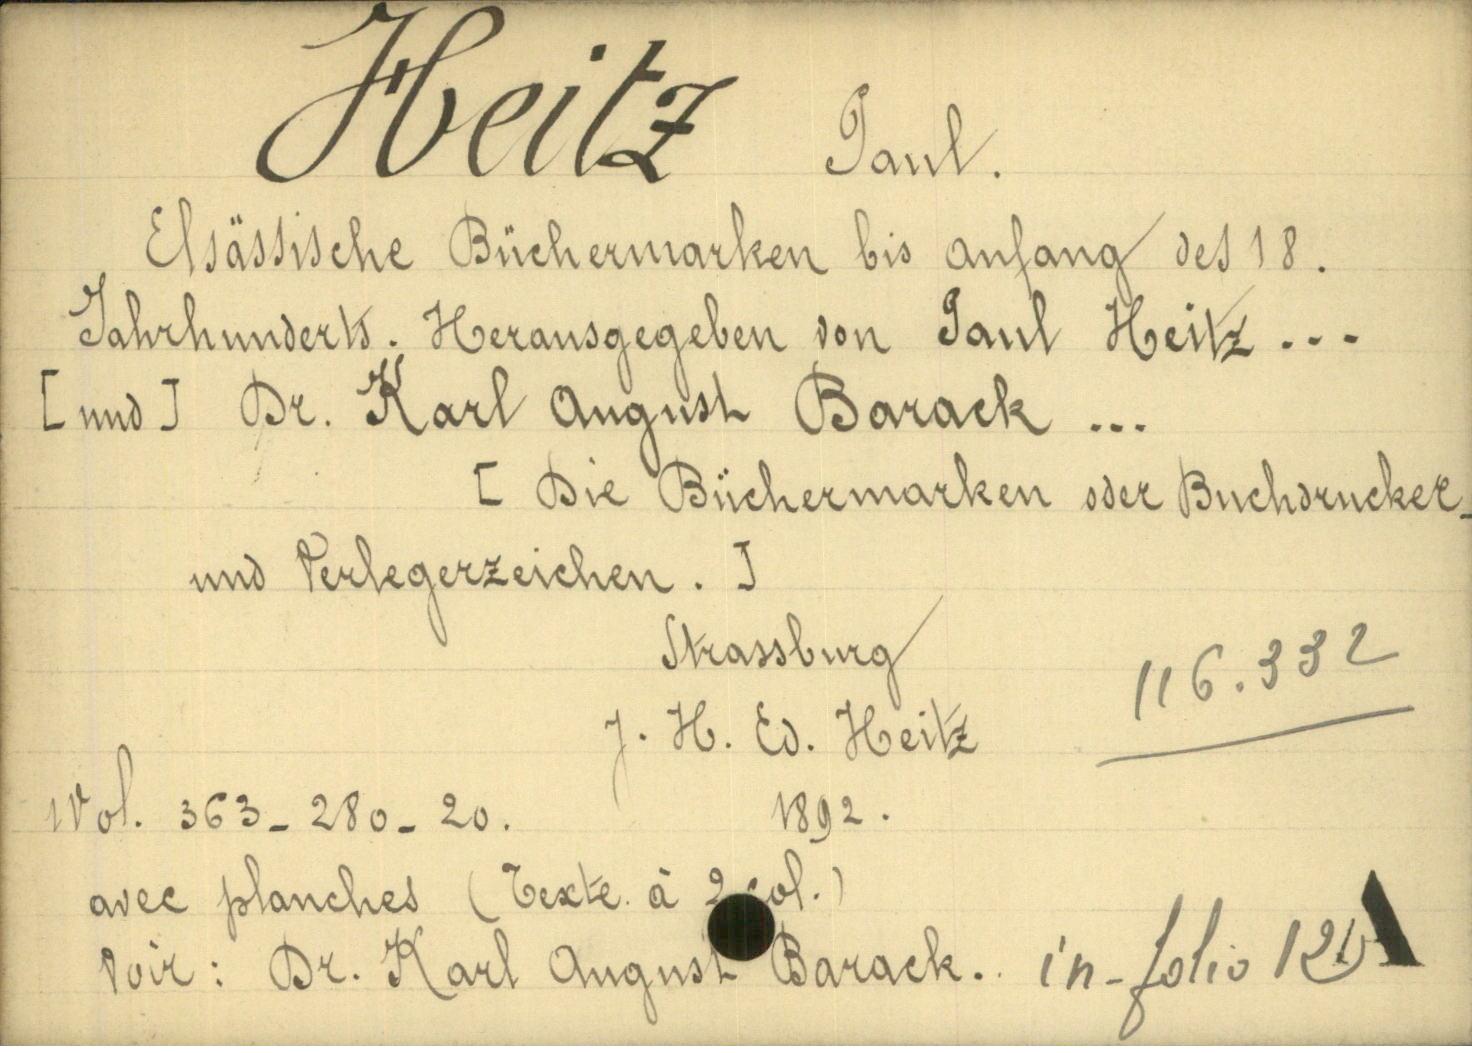 Heitz Paul.
Elsässische Büchermarken bis anfang des 18.
Jahrhunderts. Herausgegeben von Paul Heitz ...
[und] Dr. Karl August Barack ...
[Die Büchermarken oder Buchdrucker-
und Verlegerzeichen.]
Strassburg
116.332
J. H. Ed. Heitz
1 Vol. 363-280-20. 1892.
avec planches (Texte à 2 col.)
Voir: Dr. Karl August Barack. in-folio A